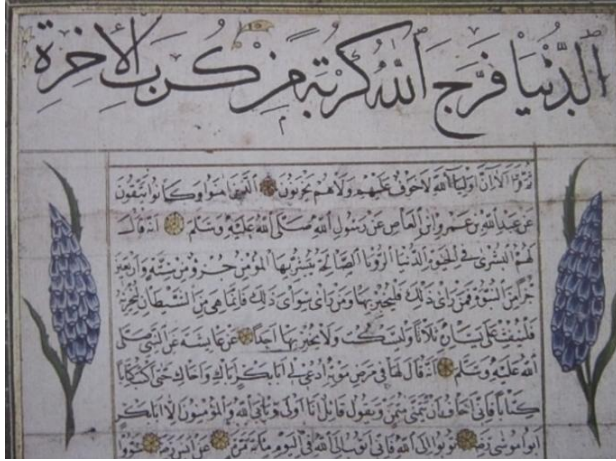 الدُّنْيَا فَرَّجَ ٱللهُ كُرْبَةً مِنْ كُرَبِ الأخِرَةِ
الا ان اولياء الله لا خوف عليهم ولا هم يحزنون الذين امنوا وكانوا يتقون
عن عبد الله بن عمرو ابن العاص عن رسول الله صلى الله عليه وسلم انه قال
لهم البشرى في الحيوة الدنيا الرؤيا الصالحة يبشر بها المؤمن جزؤ من ستة واربعين
جزأ من النبوة فمن رأى ذلك فليخبر بها ومن رأى سوى ذلك فانما هي من الشيطان ليحزن
فلينفث على يساره ثلاثا وليسكت ولا يخبر بها احدا عن عايشة عن النبي صلى
الله عليه وسلم انه قال لها في مرض موته ادعى لي ابا بكر اباك واخاك حتى اكتب
كتابا فاني اخاف ان يتمنى متمن ويقول قائل انا اولى ويأبى الله والمؤمنون الا ابا بكر
ابو موسى رضه توبوا الى الله فاني اتوب الى الله في اليوم ماية مرة عن انس رضه